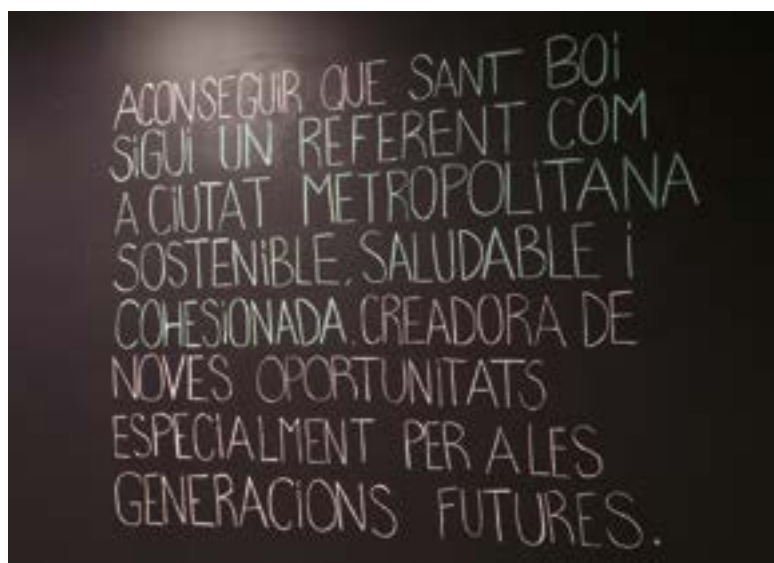 ACONSEGUIR QUE SANT BOI
SiGUi UN REFERENT COM
A CIUTAT METROPOLiTANA
SOSTENiBLE, SALUDABLE i
COHESiONADA, CREADORA DE
NOVES OPORTUNiTATS
ESPECIALMENT PER A LES
GENERACiONS FUTURES.